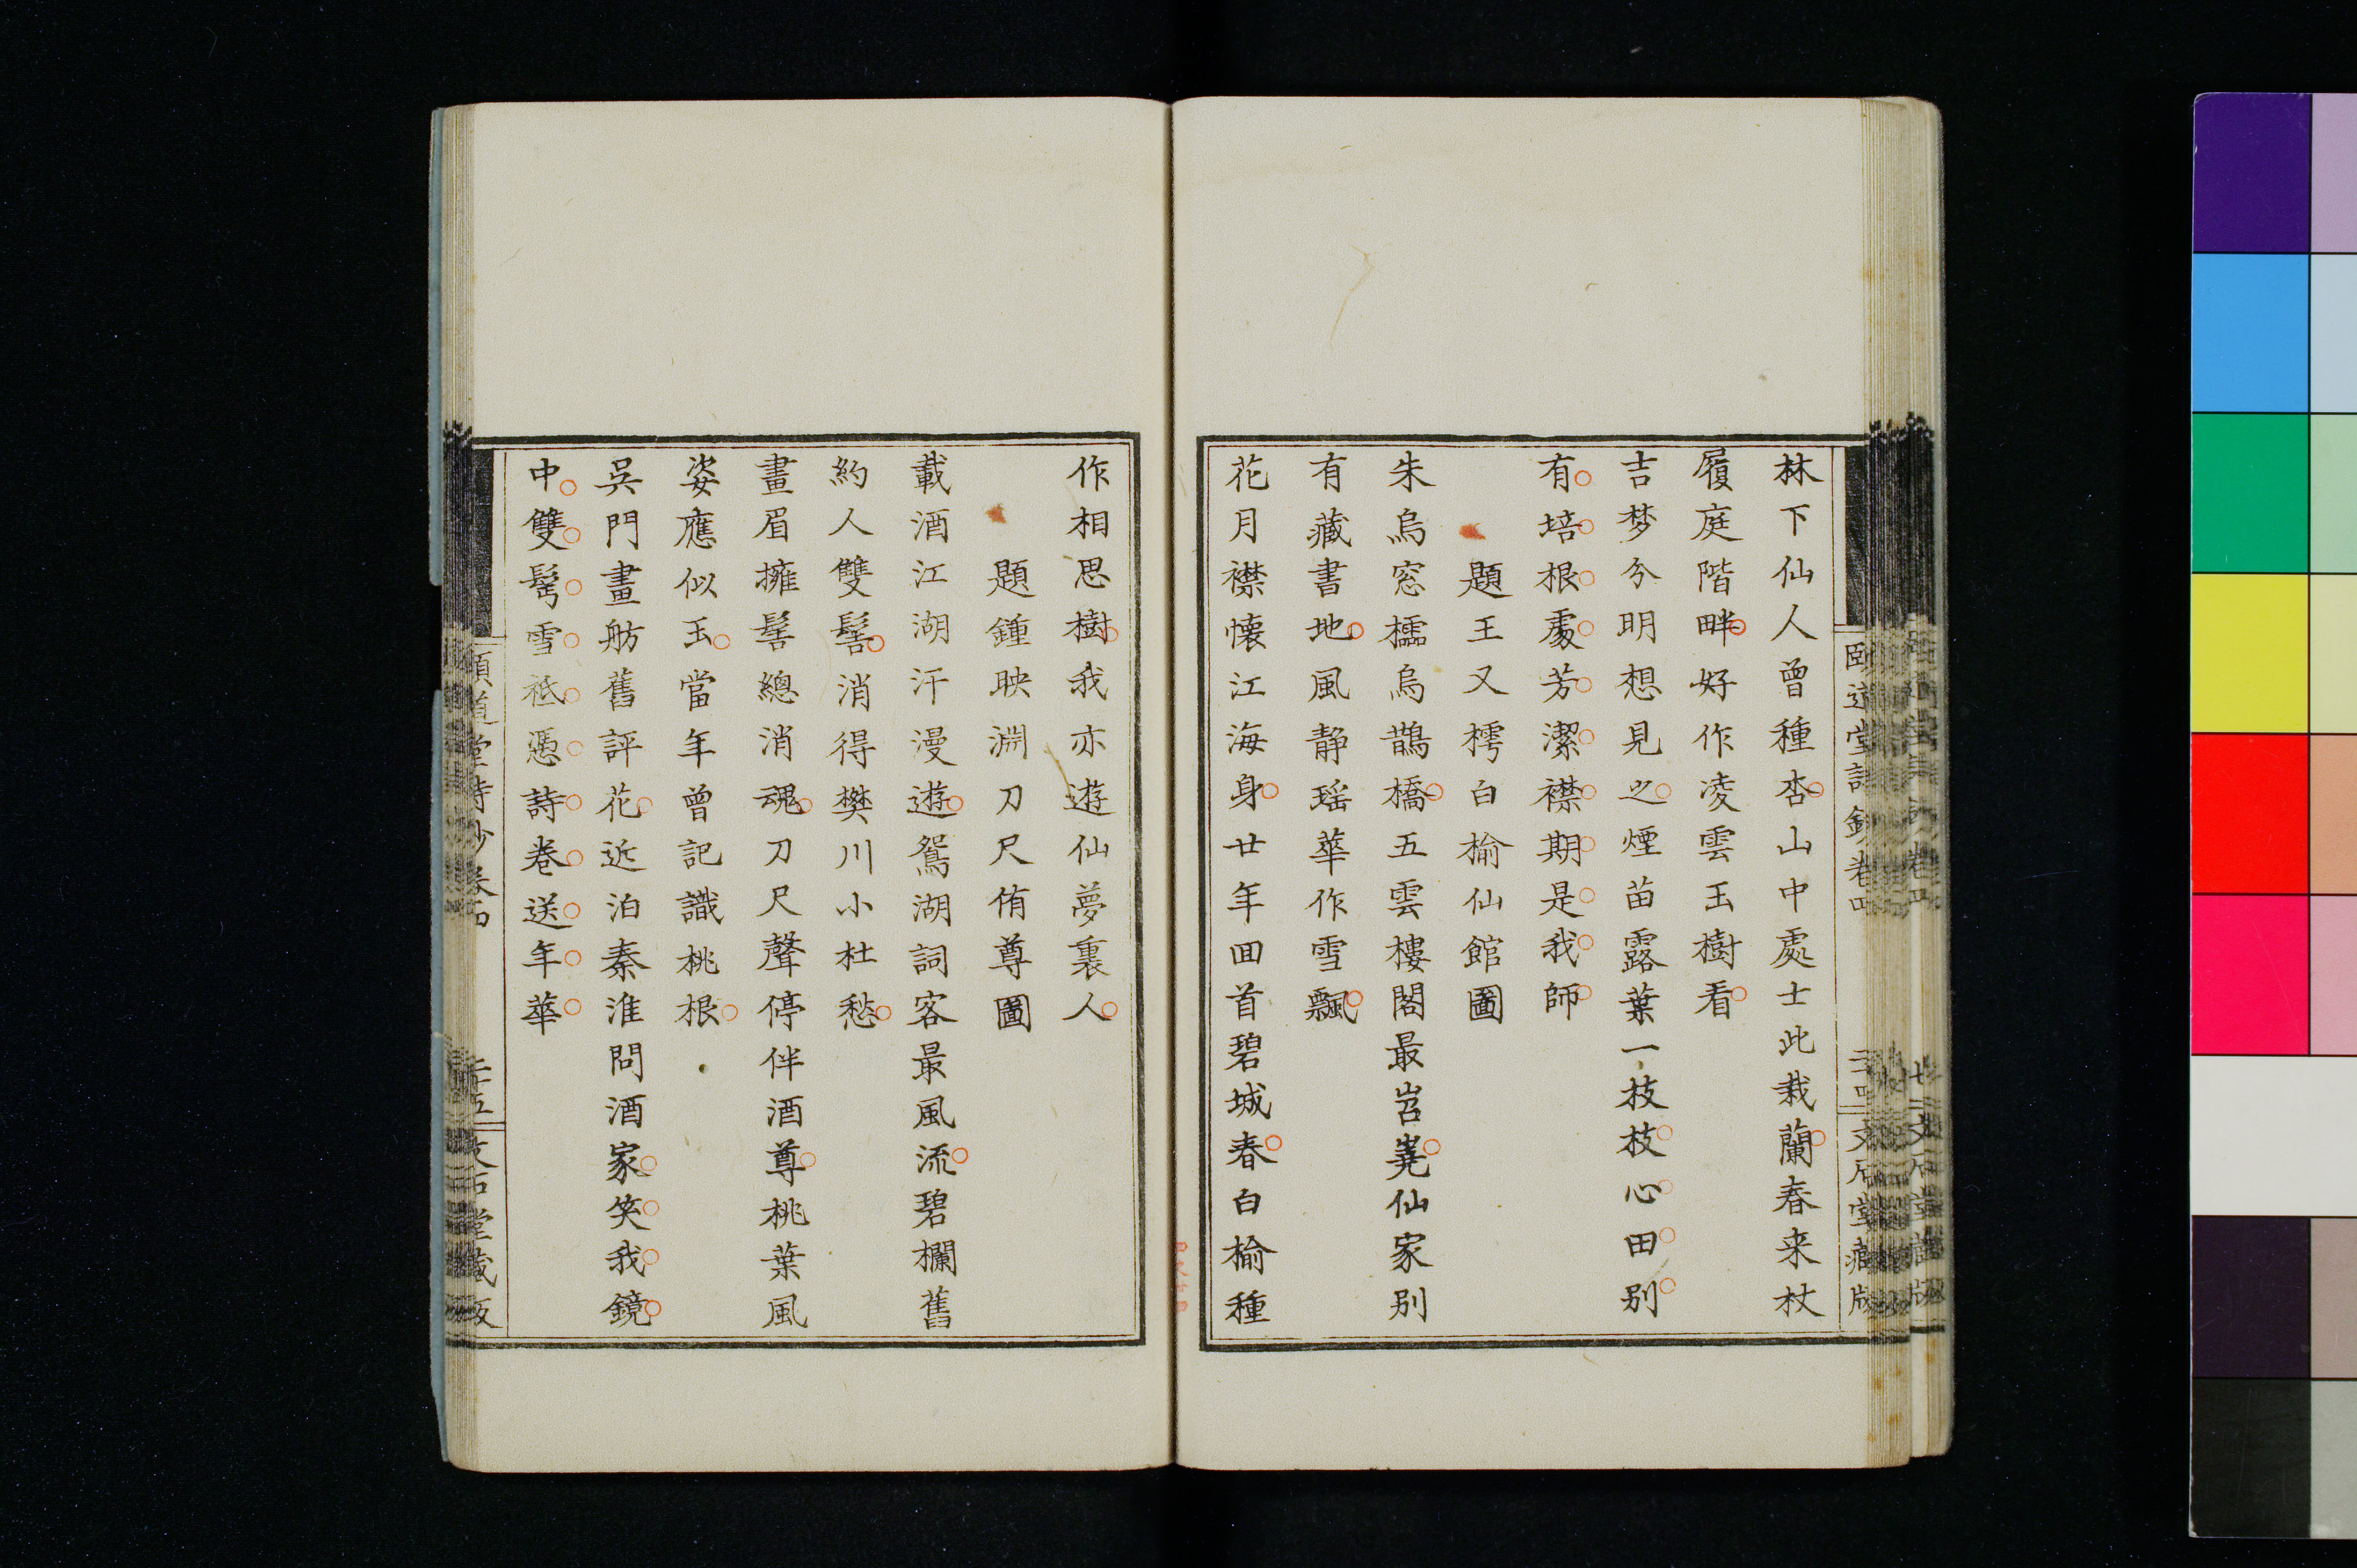 林下仙人曾種杏山中處士此栽蘭春来杖
履庭階畔好作凌雲玉樹看
吉梦兮明想見之煙苗露葉一枝枝心田别
有培根處芳潔襟期是我師
題王又樗白榆仙館圖
朱鳥窓櫺烏鵲橋五雲樓閣最岧嶤仙家别
有藏書地風静瑶華作雪飄
花月襟懷江海身廿年回首碧城春白榆種
作相思樹我亦遊仙夢裏人
題鍾映淵刀尺侑尊圖
載酒江湖汗漫遊鴛湖詞客最風流碧欄舊
約人雙髻消得樊川小杜愁
畫眉擁髻總消魂刀尺聲停伴酒尊桃葉風
姿應似玉當年曾記識桃根
吳門畫舫舊評花近泊秦淮問酒家笑我鏡
中雙髩雪祗憑詩卷送年華
頤道堂詩鈔卷四
二十五
文石堂藏版